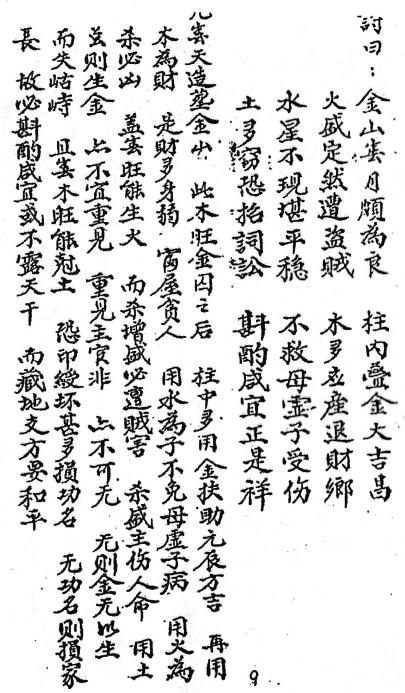 詩曰：金山春月頗為良　柱內疊金大吉昌
火盛定然遭盜賊　木多立產退財鄉
水星不現堪平稳　不救母虛子受伤
土多窃恐招詞訟　斟酌咸宜正是祥
凡春天造塟金山　此木旺金囚之后　柱中多用金扶助元辰方吉　再用
木為財　是財多身弱　富屋貧人　用水為子不免母虛子病　用火為
杀必凶　盖春旺能生火　而杀增盛必遭賊害　杀盛主伤人命　用土
玆則生金　亦不宜重見　重見主官非　亦不可无　无則金无以生
而失岵恃　且春木旺能尅土　恐印綬坏甚多損功名　无功名則損家
長　故必斟酌咸宜或不露天干　而藏地支方妥和平
9